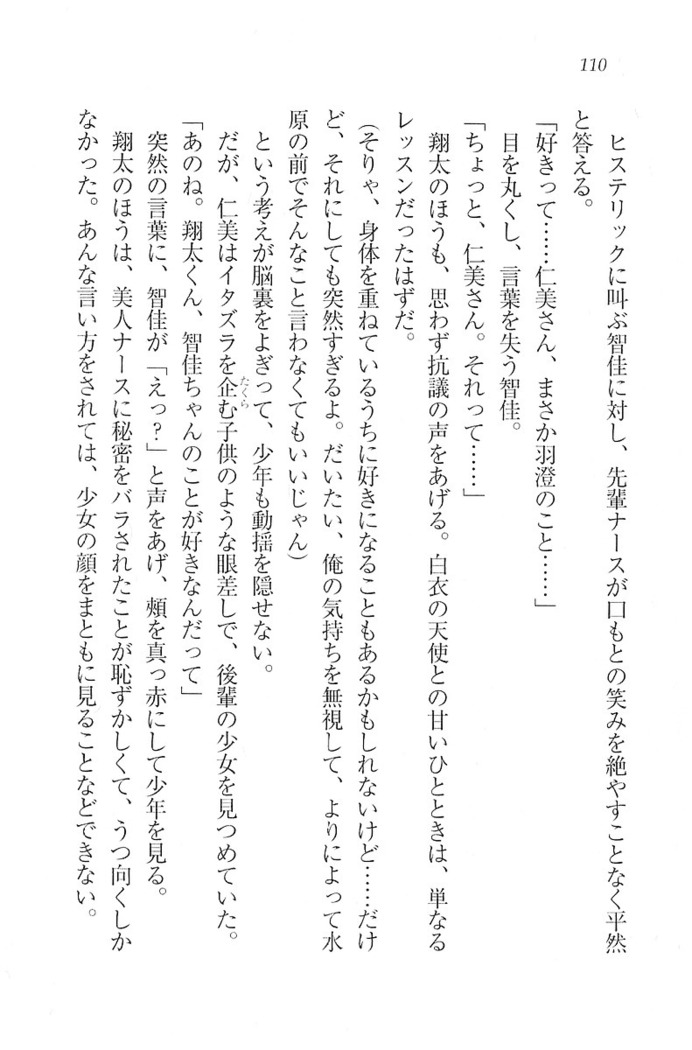 110
ヒステリックに叫ぶ智佳に対し、先輩ナースが口もとの笑みを絶やすことなく平然
と答える。
「好きって……仁美さん、まさか羽澄のこと……」
目を丸くし、言葉を失う智佳。
「ちょっと、仁美さん。それって……」
翔太のほうも、思わず抗議の声をあげる。白衣の天使との甘いひとときは、単なる
レッスンだったはずだ。
（そりゃ、身体を重ねているうちに好きになることもあるかもしれないけど……だけ
ど、それにしても突然すぎるよ。だいたい、俺の気持ちを無視して、よりによって水
原の前でそんなこと言わなくてもいいじゃん）
という考えが脳裏をよぎって、少年も動揺を隠せない。
だが、仁美はイタズラを企む子供のような眼差しで、後輩の少女を見つめていた。
たくら
「あのね。翔太くん、智佳ちゃんのことが好きなんだって」
突然の言葉に、智佳が「えっ？」と声をあげ、頰を真っ赤にして少年を見る。
翔太のほうは、美人ナースに秘密をバラされたことが恥ずかしくて、うつ向くしか
なかった。あんな言い方をされては、少女の顔をまともに見ることなどできない。